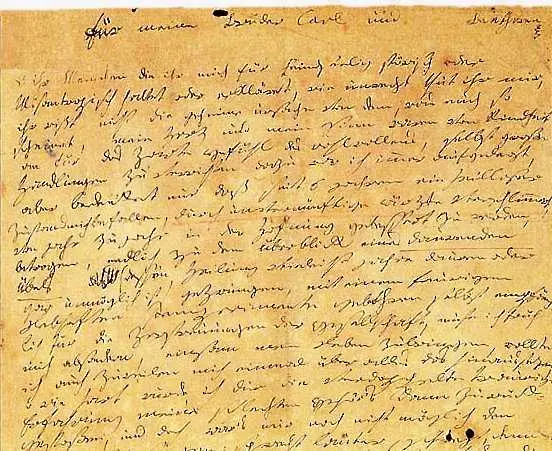 für meine Brüder Carl und Beethoven
O ihr Menschen die ihr mich für Feindseelig störisch oder
Misantropisch haltet oder erkläret, wie unrecht thut ihr mir,
ihr wißt nicht die geheime urßache von dem, was euch so
scheinet, mein Herz und mein Sinn waren von Kindheit
an für das zarte gefühl des wohlwollens, selbst große
Handlungen zu verrichten dazu war ich immer aufgelegt,
aber bedenket nur daß seit 6 jahren ein heilloser
Zustand mich befallen, durch unvernünftige ärzte verschlimmert,
von jahr zu jahr in der Hofnung gebessert zu werden,
betrogen, endlich zu dem überblick eines daurenden
Übels Heilung vieleicht jahre dauren oder
gar unmöglich ist, gezwungen, mit einem feurigen
Lebhaften Temperamente gebohren selbst empfäng
lich für die Zerstreuungen der gesellschaft, muste ich früh
mich absondern, einsam mein Leben zubringen, wollte
ich auch zuweilen mich einmal über alles das hinaussezen,
o wie hart wurde ich dur die verdoppelte traurige
Erfahrung meines schlechten gehör's dann zurück
gestoßen, und doch war's mir noch nicht möglich den
sprecht lauter, schreyt, denn